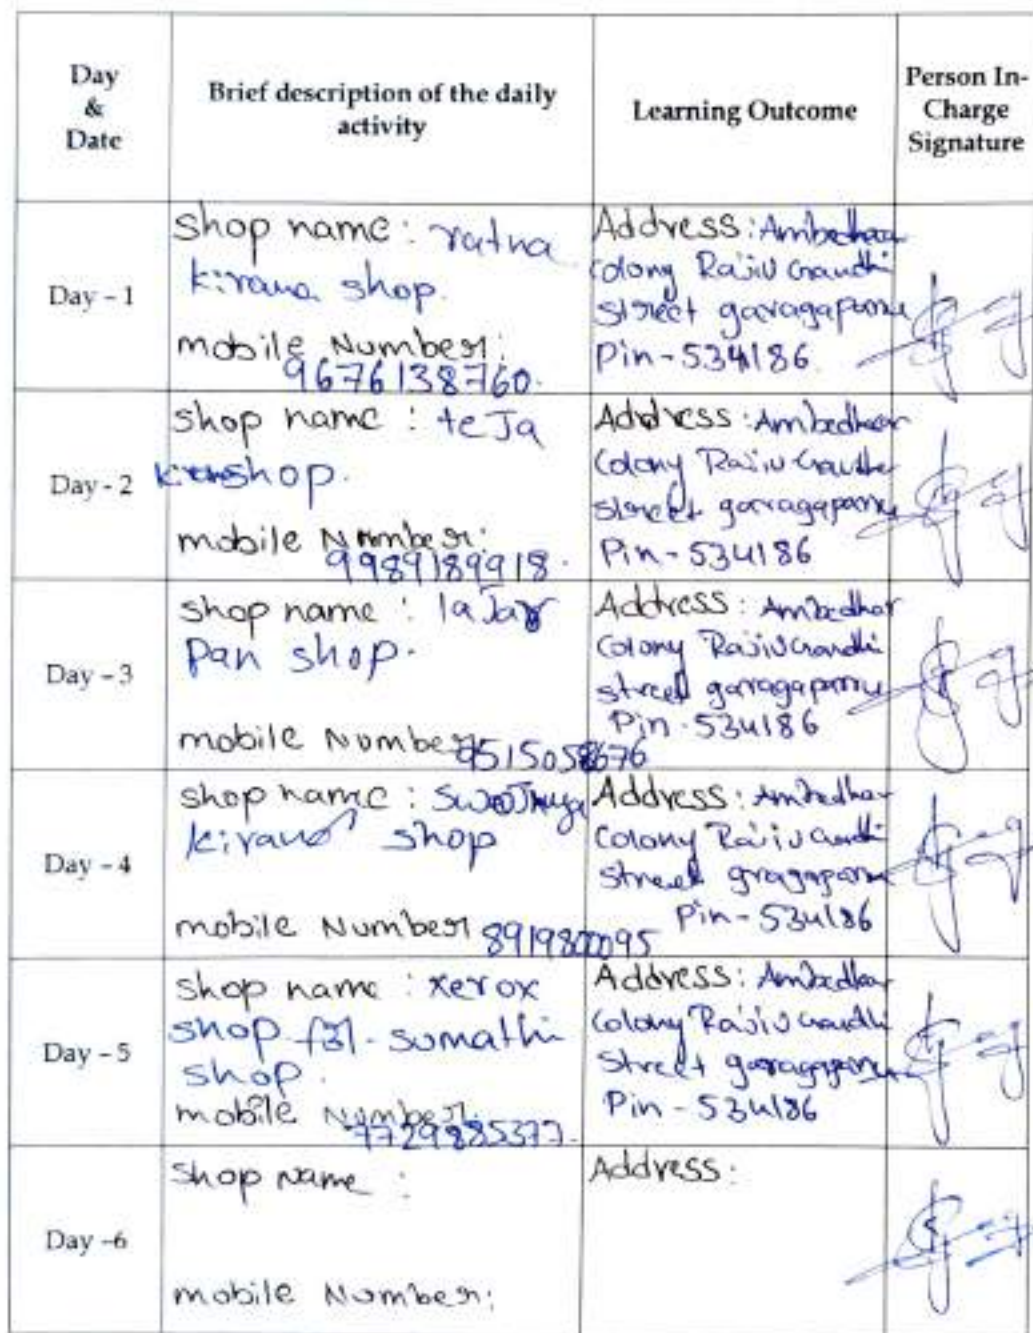 Day & Date
Brief description of the daily activity
Learning Outcome
Person In-Charge Signature
Day - 1
shop name : ratna
kirana shop.
mobile Number:
9676138760.
Address: Ambedkar
colony Rajiv Gandhi
street garagaparru
Pin - 534186.
Day - 2
shop name : teJa
shop.
mobile Number:
9989189918.
Address: Ambedkar
Colony Rajiv Gandhi
street garagaparru
Pin - 534186
Day - 3
shop name : 
Pan shop.
mobile Number
9515058676
Address: Ambedkar
Colony Rajiv Gandhi
street garagaparru
Pin - 534186
Day - 4
shop name :
kirana shop
mobile Number 8919800095
Address: Ambedkar
Colony Rajiv Gandhi
street
Pin - 534186
Day - 5
shop name : xerox
shop. sumathi
shop.
mobile Number:
7729885377.
Address: Ambedkar
Colony Rajiv Gandhi
street garagaparru
Pin - 534186
Day -6
shop Name :
mobile Number:
Address: